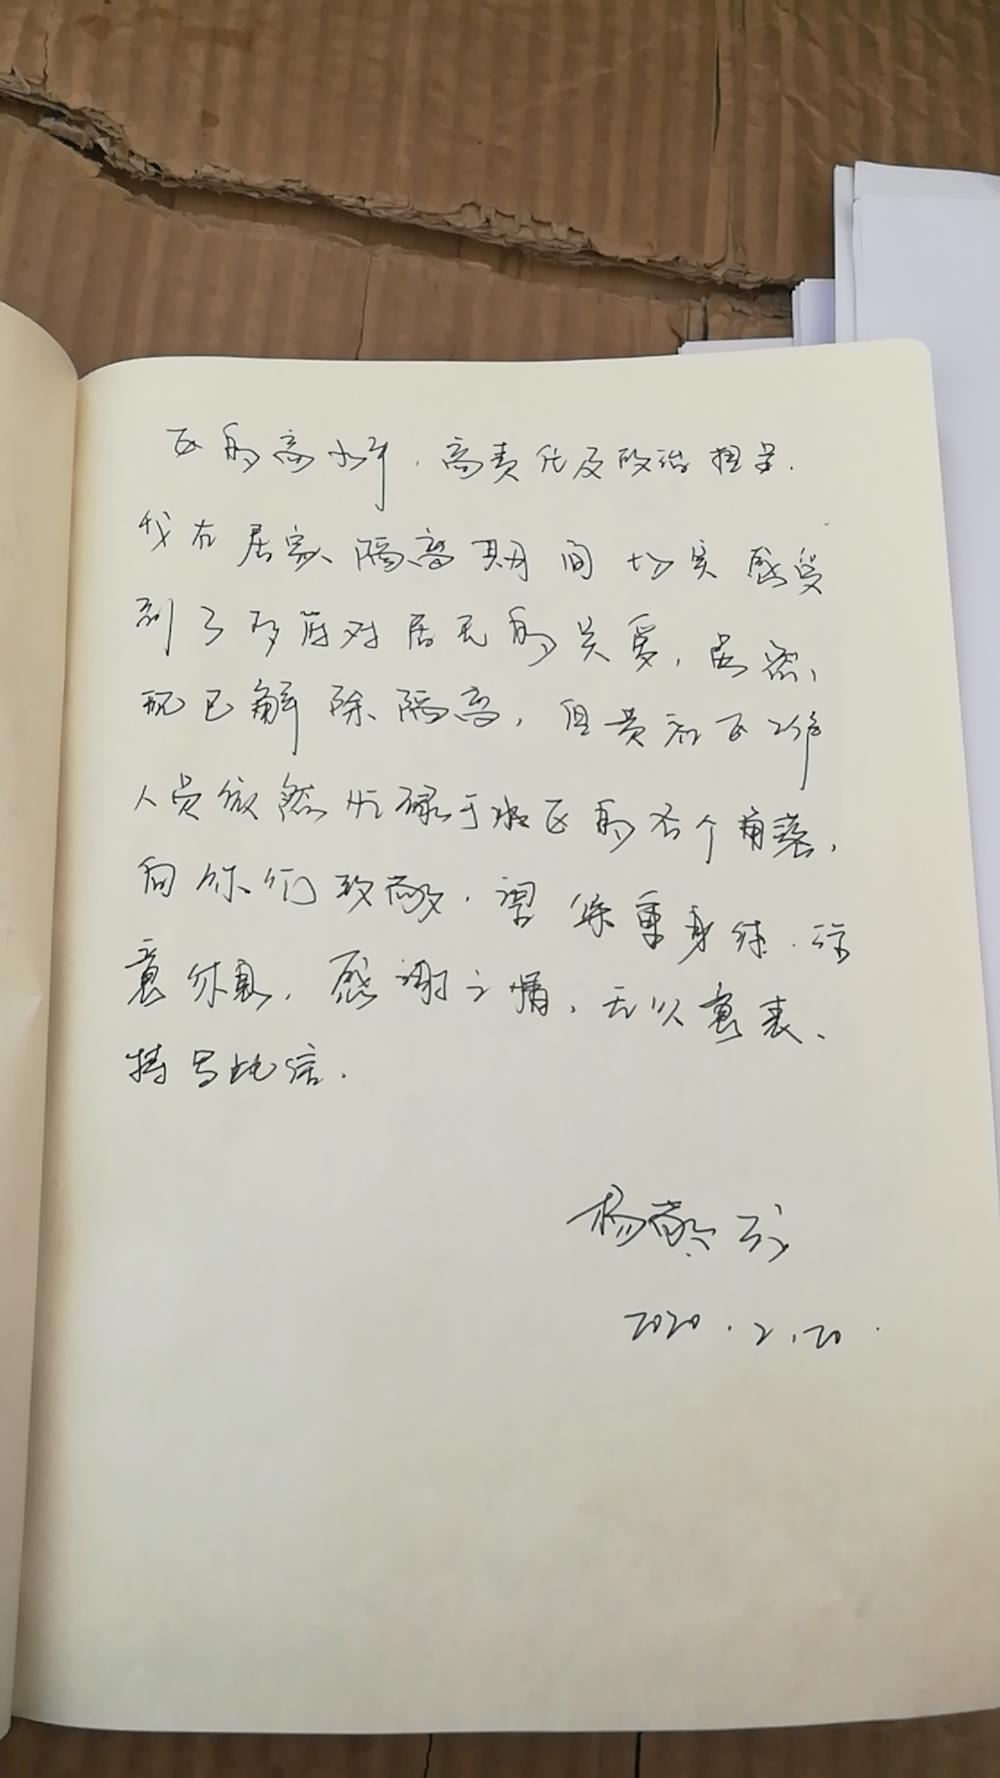 区的高水平、高责任及政治担当.
我在居家隔离期间切实感受
到了政府对居民的关爱,虽然,
现已解除隔离,但贵社区工作
人员依然忙碌于社区的各个角落,
向你们致敬.望保重身体.注
意休息,感谢之情,无以意表、
特写此信.
杨
2020.2.20.